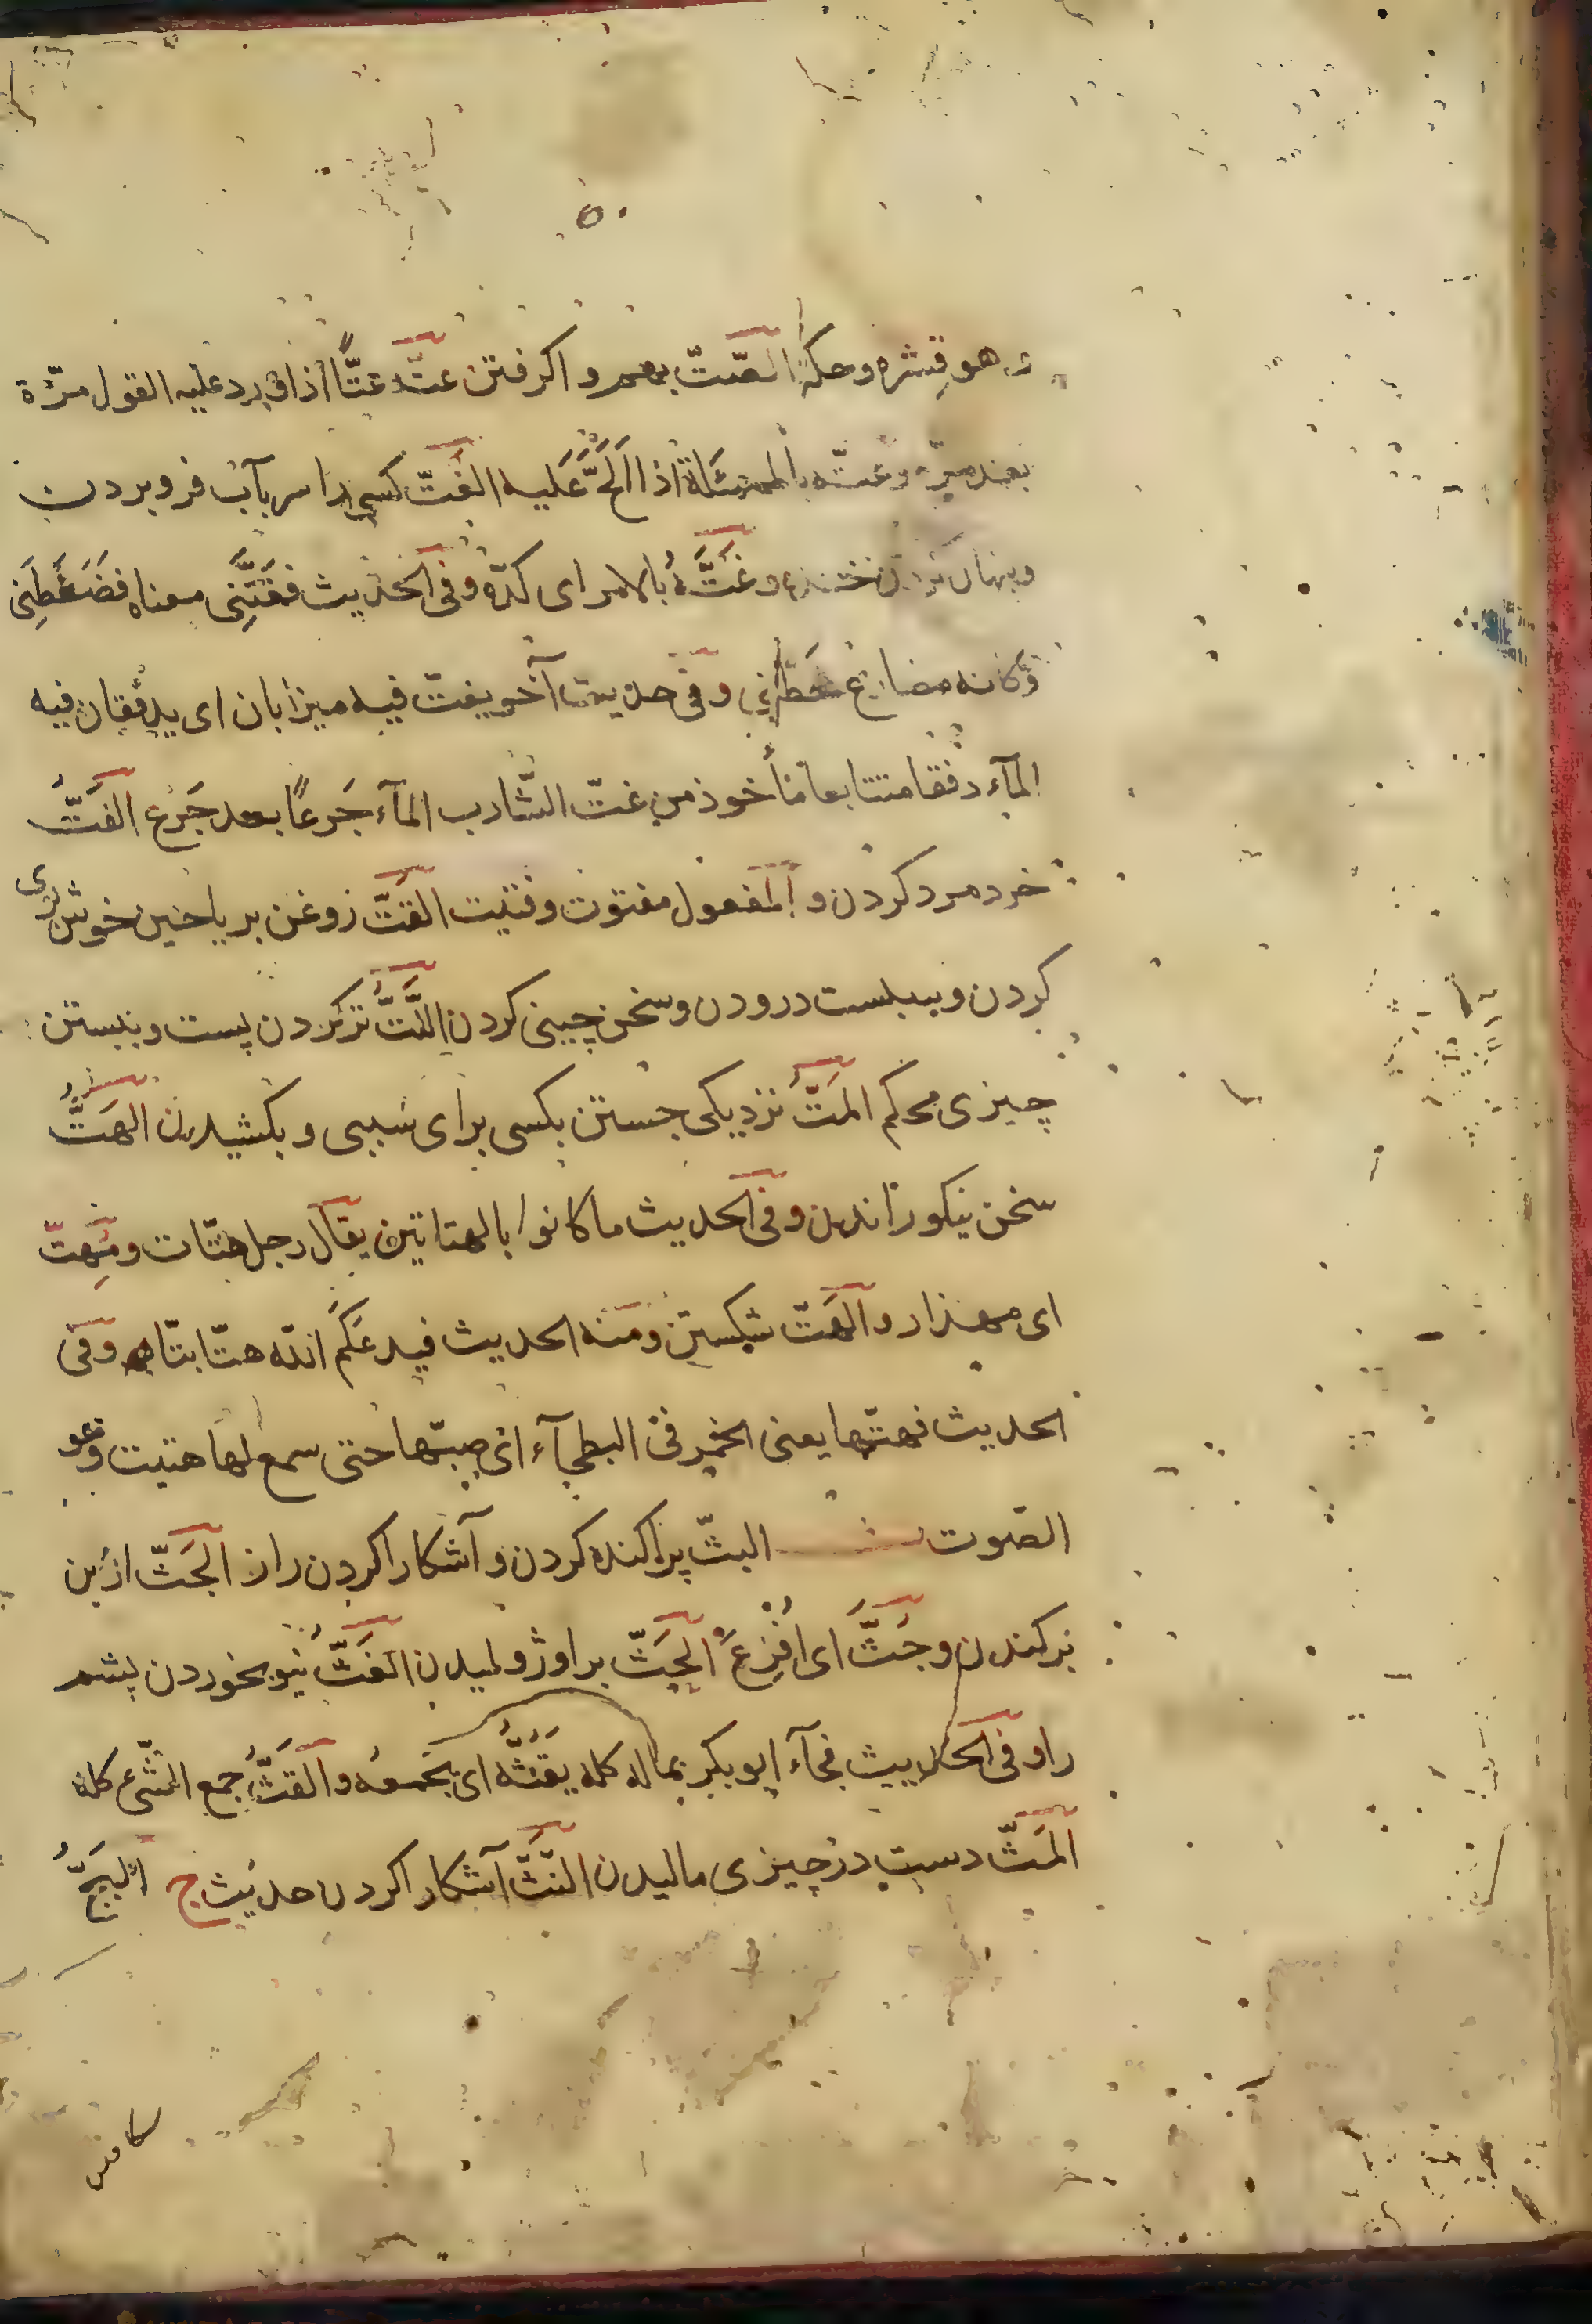 ۵۰
و هو قِشره وحكه الصّتّ بهم وا كرفتن عتّه عتّاً اذا ردد عليه القول مرّة
بعد مرّة وعتّه بالمسئلة اذا اَلَحَّ عَليه الغَتّ كسى را سر بآب فرو بردن
وپنهان كردن خنده وغَتَّهُ بالامر اى كدّه وفى الحديث فغَتَّنِى معناه فضَغَطَنِى
وكانه مضارع غطّني وفى حديث آخر يغتّ فيه ميزابان اى يدفقان فيه
المآء دفقا متتابعا مأخوذ من غتّ الشّارب المآء جَرعًا بعد جَرع الفَتُّ
خرد مرد كردن و المفعول مفتوت وفتيت القَتُّ روغن برياحين خوش بوى
كردن وسبست درودن وسخن چينى كردن اللَّتُّ تر كردن پست وببستن
چيزى محكم المَتُّ نزديكى جستن بكسى براى سببى وبكشيدن الهَتُّ
سخن نيكو راندن وفى الحديث ما كانوا بالهتاتين يقال رجل هتّات ومِهتّ
اى مهذار والهَتّ شكستن ومنه الحديث فيدعَكم الله هتّا بتّا وفى
الحديث فهتّها يعنى الخمر فى البطحآء اى صبّها حتى سمع لها هتيت وهو
الصّوت ث البثّ پراكنده كردن و آشكارا كردن راز الجَثّ از بن
بركندن وجَثَّ اى اُفْزِعَ الحَثّ براوژوليدن الغَثُّ نيو بخوردن پشم
را وفى الحديث فجآء ابو بكر بماله كله يَقُثُّه اى يجمعه والقَثُّ جمع الشّىء كله
المَثّ دست در چيزى ماليدن النَّثّ آشكارا كردن حديث ج البَجُّ